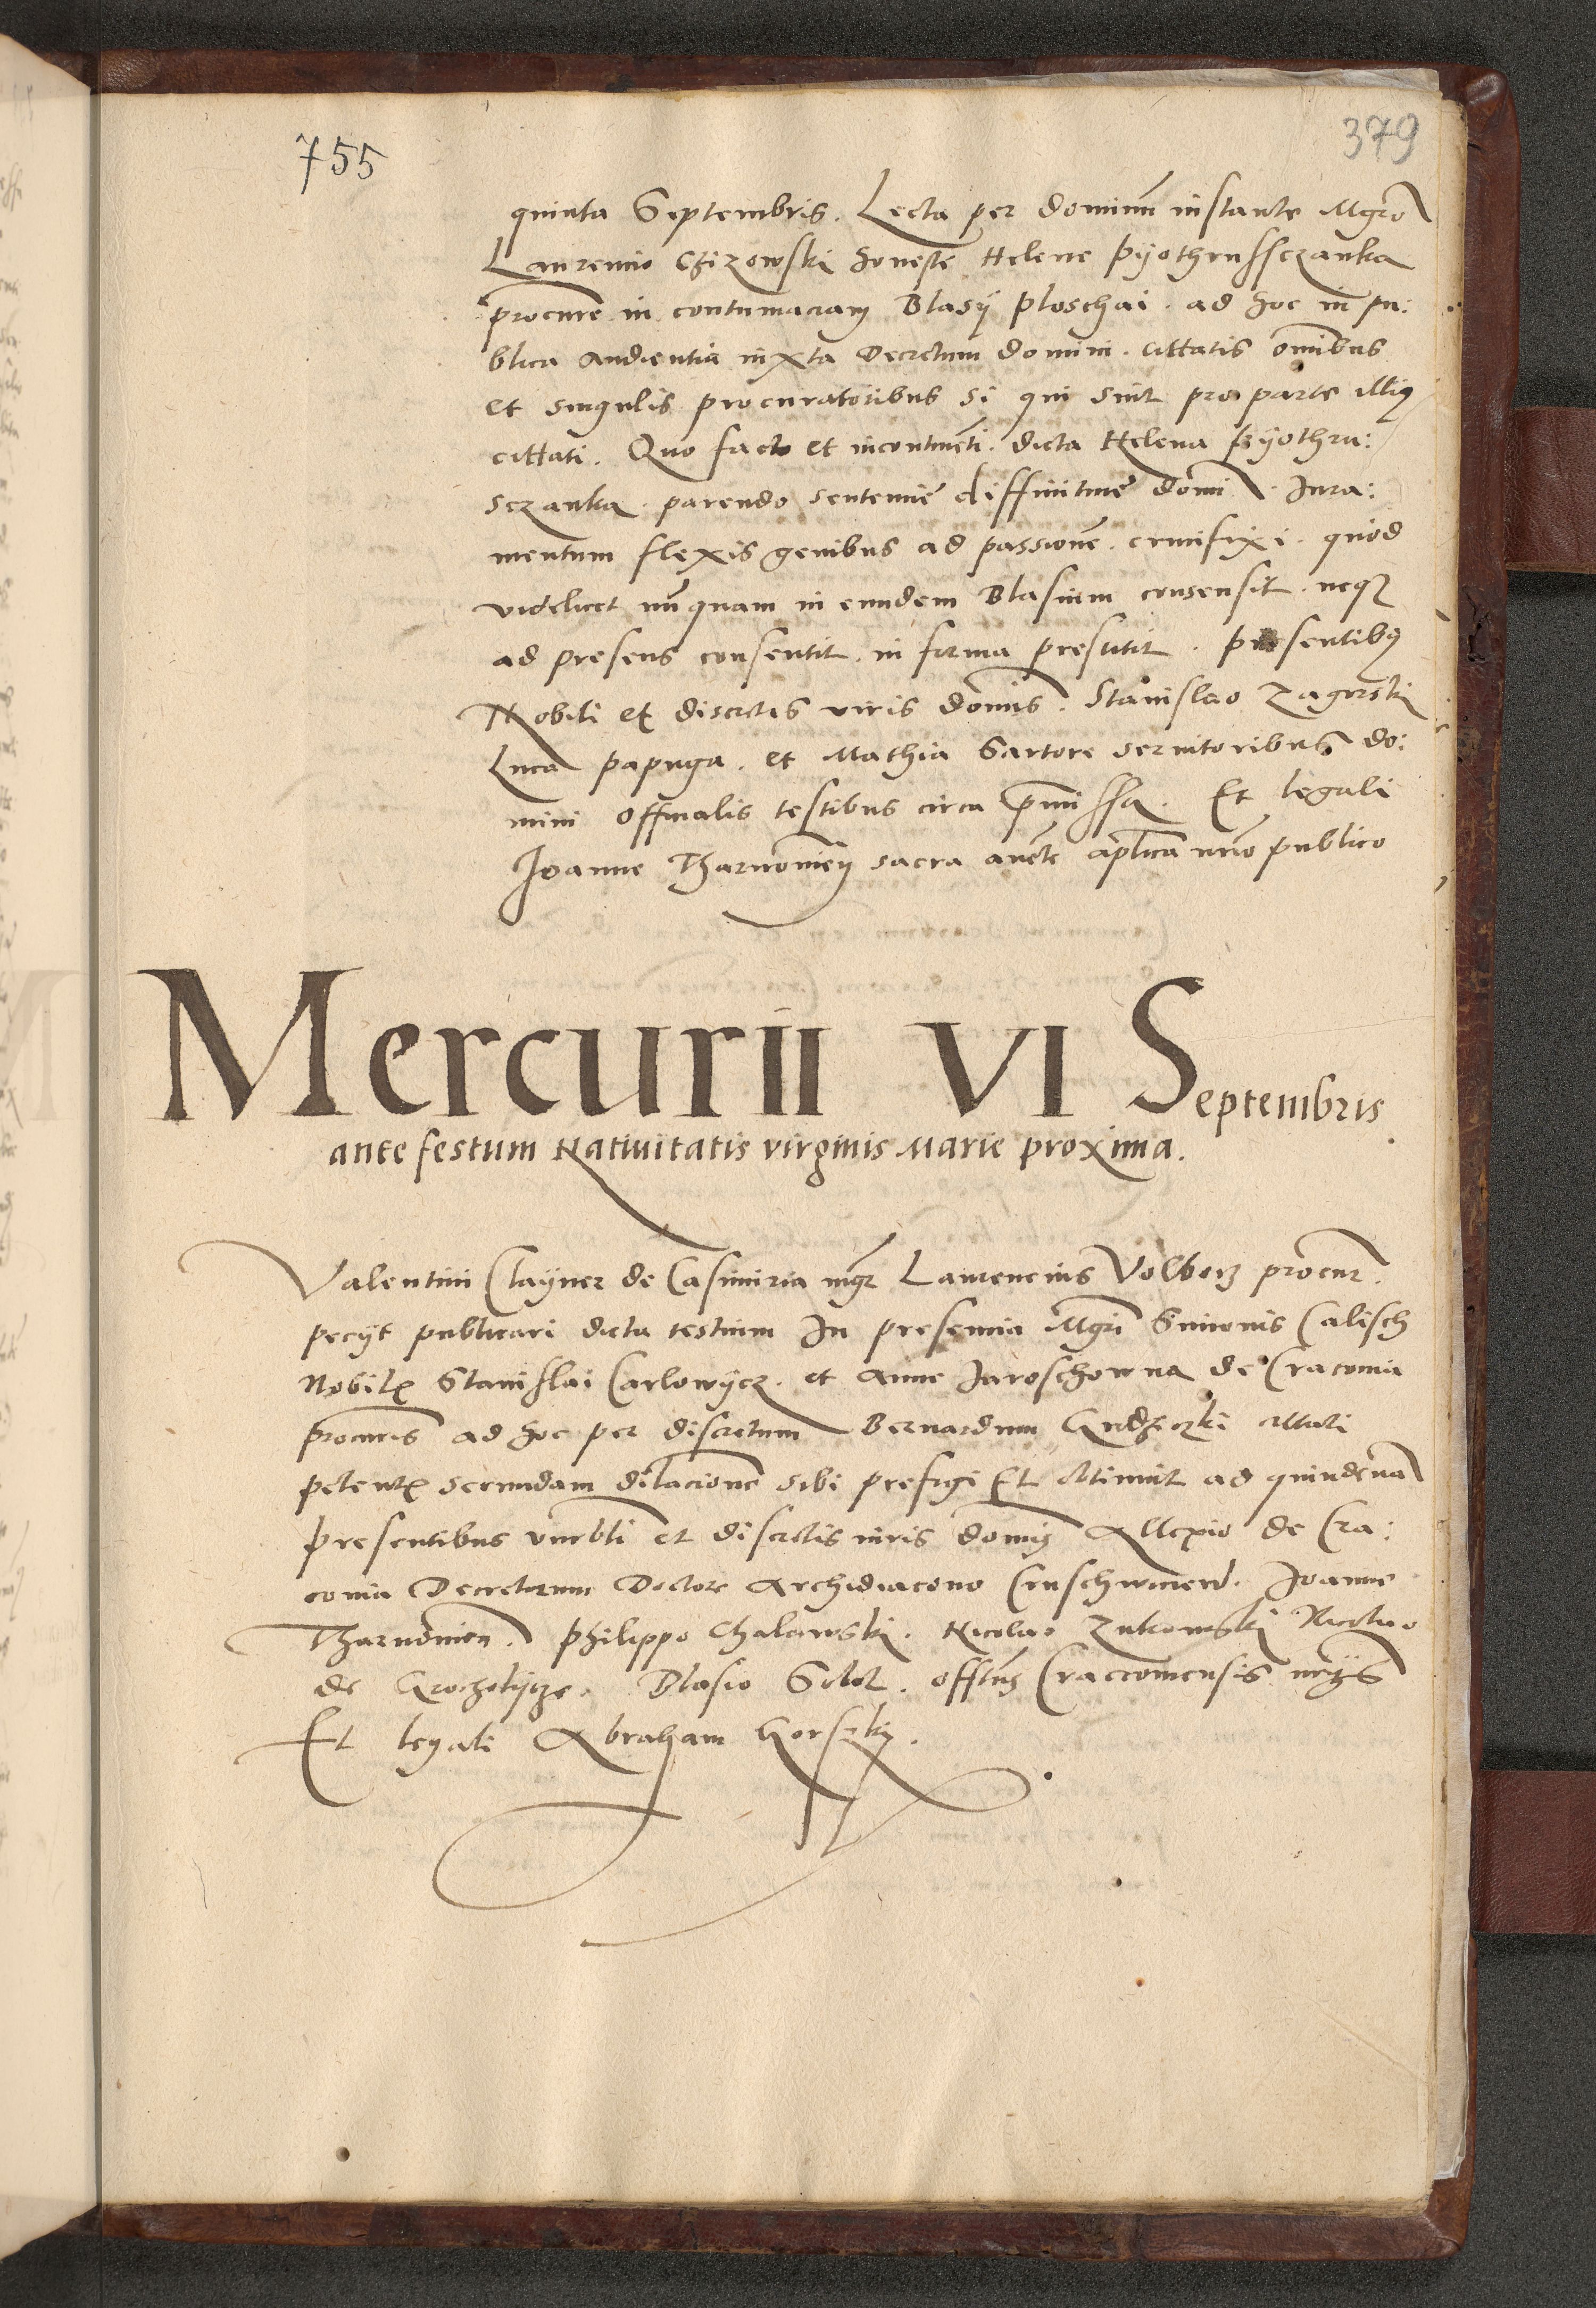 755
379
quinta Septembris. Lecta per dominum instante Mgro
Laurencio Chizowski honeste Helene Pyothrussczanka
procure in contumaciam Blasij Ploschai. ad hoc in pu:
blica audientia iuxta Decretum domini. cittatis omnibus
et singulis procuratoribus si qui sint pro parte illius
cittati. Quo facto et incontinenti. dicta Helena Pyothru:
sczanka. parendo sentencie diffinitive domini. Iura:
mentum flexis genibus ad passionem. crucifixi. quod
videlicet nunquam in eundem Blasium consensit. neque
ad presens consentit. in forma prestitit. presentibus
Nobili et discretis viris dominis. Stanislao Zagorski
Luca papuga. et Mathia Sartore servitoribus do:
mini Officialis testibus circa premissa. Et legali
Joanne Tharnowiey sacra aucte aplica notario publico
Mercurii VI Septembris
ante festum Nativitatis virginis Marie proxima.
Valentini Clayner de Casimiria mgr Laurencius Volborz procur.
pecijt publicari dicta testium In presencia Mgri Simonis Calisch
Nobilis Stanislai Carlowycz. et Anne Jaroschowna de Cracovia
procuris ad hoc per discretum Bernardum cittati
petentis secundam dilacionem sibi prefigi Et obtinuit ad quindenam
presentibus venerabili et discretis viris dominis Allexio de Cra:
covia Decretorum Doctore Archidiacono Cruschwicien. Joanne
Tharnowiey. Philippo Chalawski. Nicolao Zukowski Nicolao
de Blasio officialatus Craccoviensis notarijs
Et legali Abraham Gorszki.